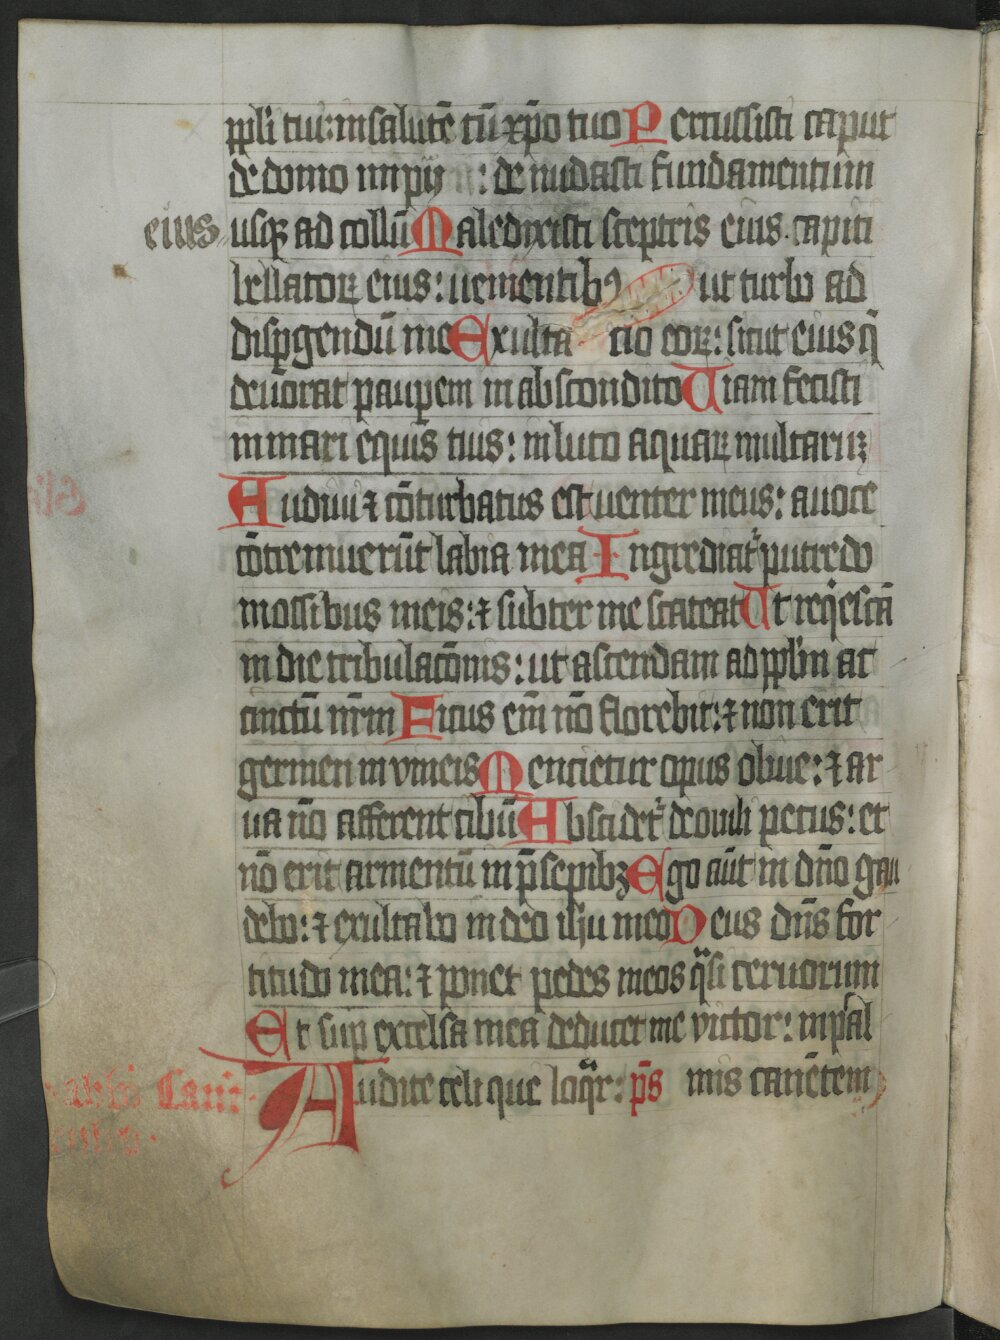 ppli tui: in salutē cū xp̄o tuo Percussisti caput
de domo impij : de nudasti fundamentum
eius usqꝫ ad collū Maledixisti sceptris eius. capiti
bellatoꝝ eius: uenientibꝰ ut turbo ad
disꝑgendū me Exulta cio eoꝝ: sicut eius q̄
deuorat pauꝑem in abscondito Uiam fecisti
in mari equis tuis: in luto aquaꝝ multarūꝫ
Audiui ⁊ cōturbatus est uenter meus: a uoce
cōtremuerūt labia mea Ingrediat᷑ putredo
in ossibus meis: ⁊ subter me scateat Ut reqͥescā
in die tribulacōnis: ut ascendam ad pplm̄ ac
cinctū nr̄m Ficus em̄ nō florebit: ⁊ non erit
germen in vineis Mencietur opus oliue: ⁊ ar
ua nō afferent cibū Abscidet᷑ de ouili pecus: et
nō erit armentū in p̄sepibꝫ Ego aūt in dn̄o gau
debo: ⁊ exultabo in deo ih̄u meo Deus dn̄s for
titudo mea: ⁊ ponet pedes meos qͣsi ceruorum
Et suꝑ excelsa mea deducet me victor: in psal
mis canētem
Audite celi que loq̄r: p̄s